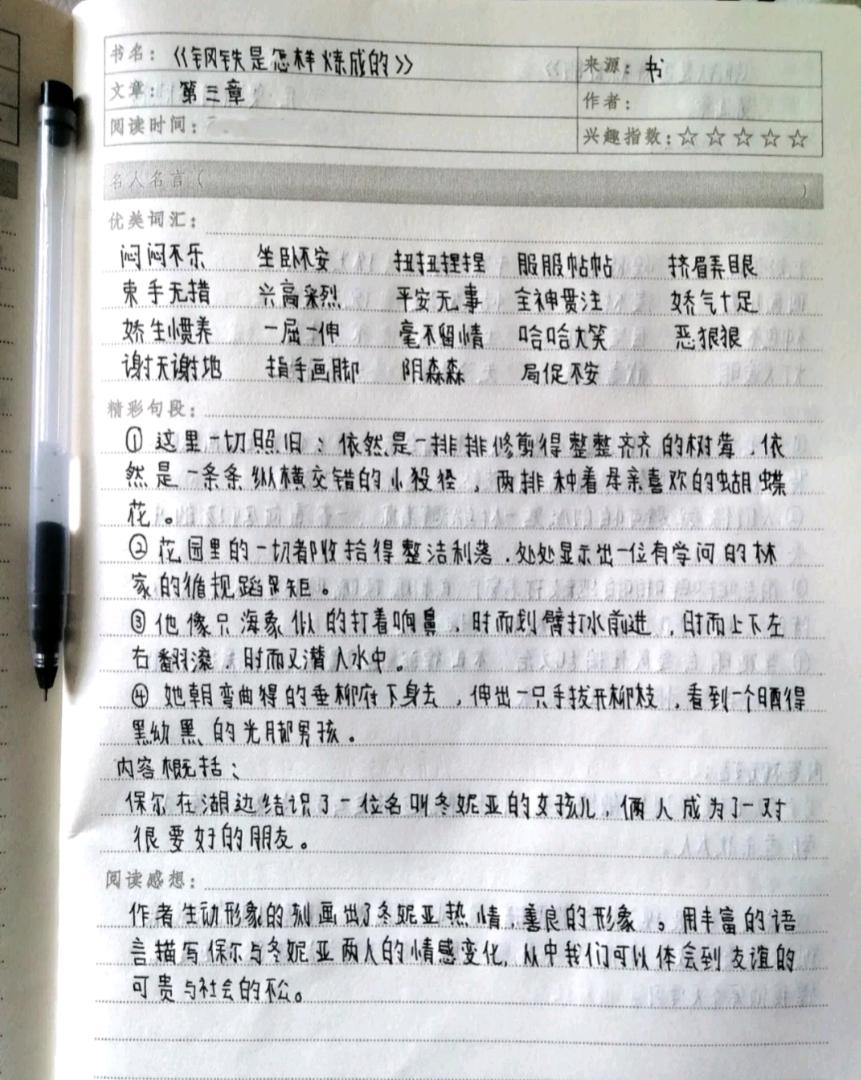 书名：《钢铁是怎样炼成的》 来源：书
文章：第三章 作者：
阅读时间： 兴趣指数：☆☆☆☆☆
名人名言（ ）
优美词汇：
闷闷不乐 坐卧不安 扭扭捏捏 服服帖帖 挤眉弄眼
束手无措 兴高采烈 平安无事 全神贯注 娇气十足
娇生惯养 一屈一伸 毫不留情 哈哈大笑 恶狠狠
谢天谢地 指手画脚 阴森森 局促不安
精彩句段：
①这里一切照旧：依然是一排排修剪得整整齐齐的树莓，依
然是一条条纵横交错的小径，两排种着母亲喜欢的蝴蝶
花。
②花园里的一切都收拾得整洁利落，处处显示出一位有学问的林
家的循规蹈矩。
③他像只海象似的打着响鼻，时而划臂打水前进，时而上下左
右翻滚，时而又潜入水中。
④她朝弯曲得的垂柳俯下身去，伸出一只手拔开柳枝，看到一个晒得
黑幼黑的光脚男孩。
内容概括：
保尔在湖边结识了一位名叫冬妮亚的女孩儿，俩人成为了一对
很要好的朋友。
阅读感想：
作者生动形象的刻画出了冬妮亚热情，善良的形象。用丰富的语
言描写保尔与冬妮亚两人的情感变化，从中我们可以体会到友谊的
可贵与社会的不公。